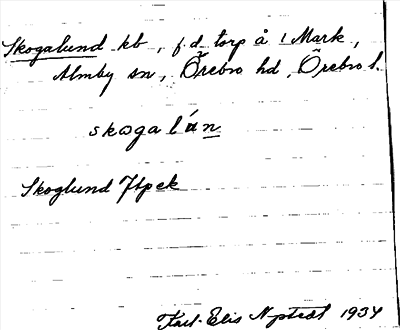 Skogalund kb, f.d. torp å 1 Mark,
Almby sn, Örebro hd, Örebro l.
skogalún
Skoglund Jfpek
Karl-Elis Nystedt 1934